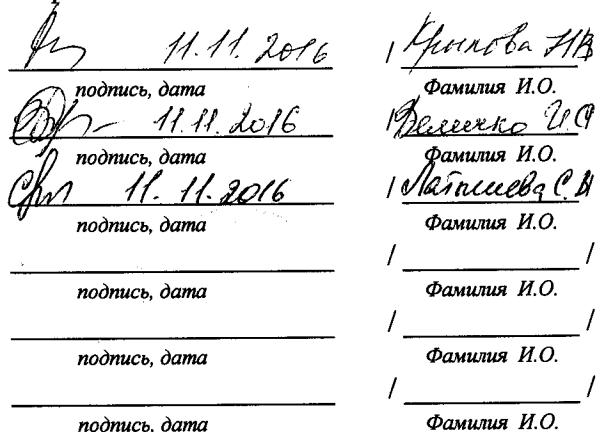 11.11.2016 / Крылова НВ
подпись, дата Фамилия И.О.
11.11.2016 / Величко И.С
подпись, дата Фамилия И.О.
11.11.2016 / Латышева С.Н
подпись, дата Фамилия И.О.
/ /
подпись, дата Фамилия И.О.
/ /
подпись, дата Фамилия И.О.
/ /
подпись, дата Фамилия И.О.